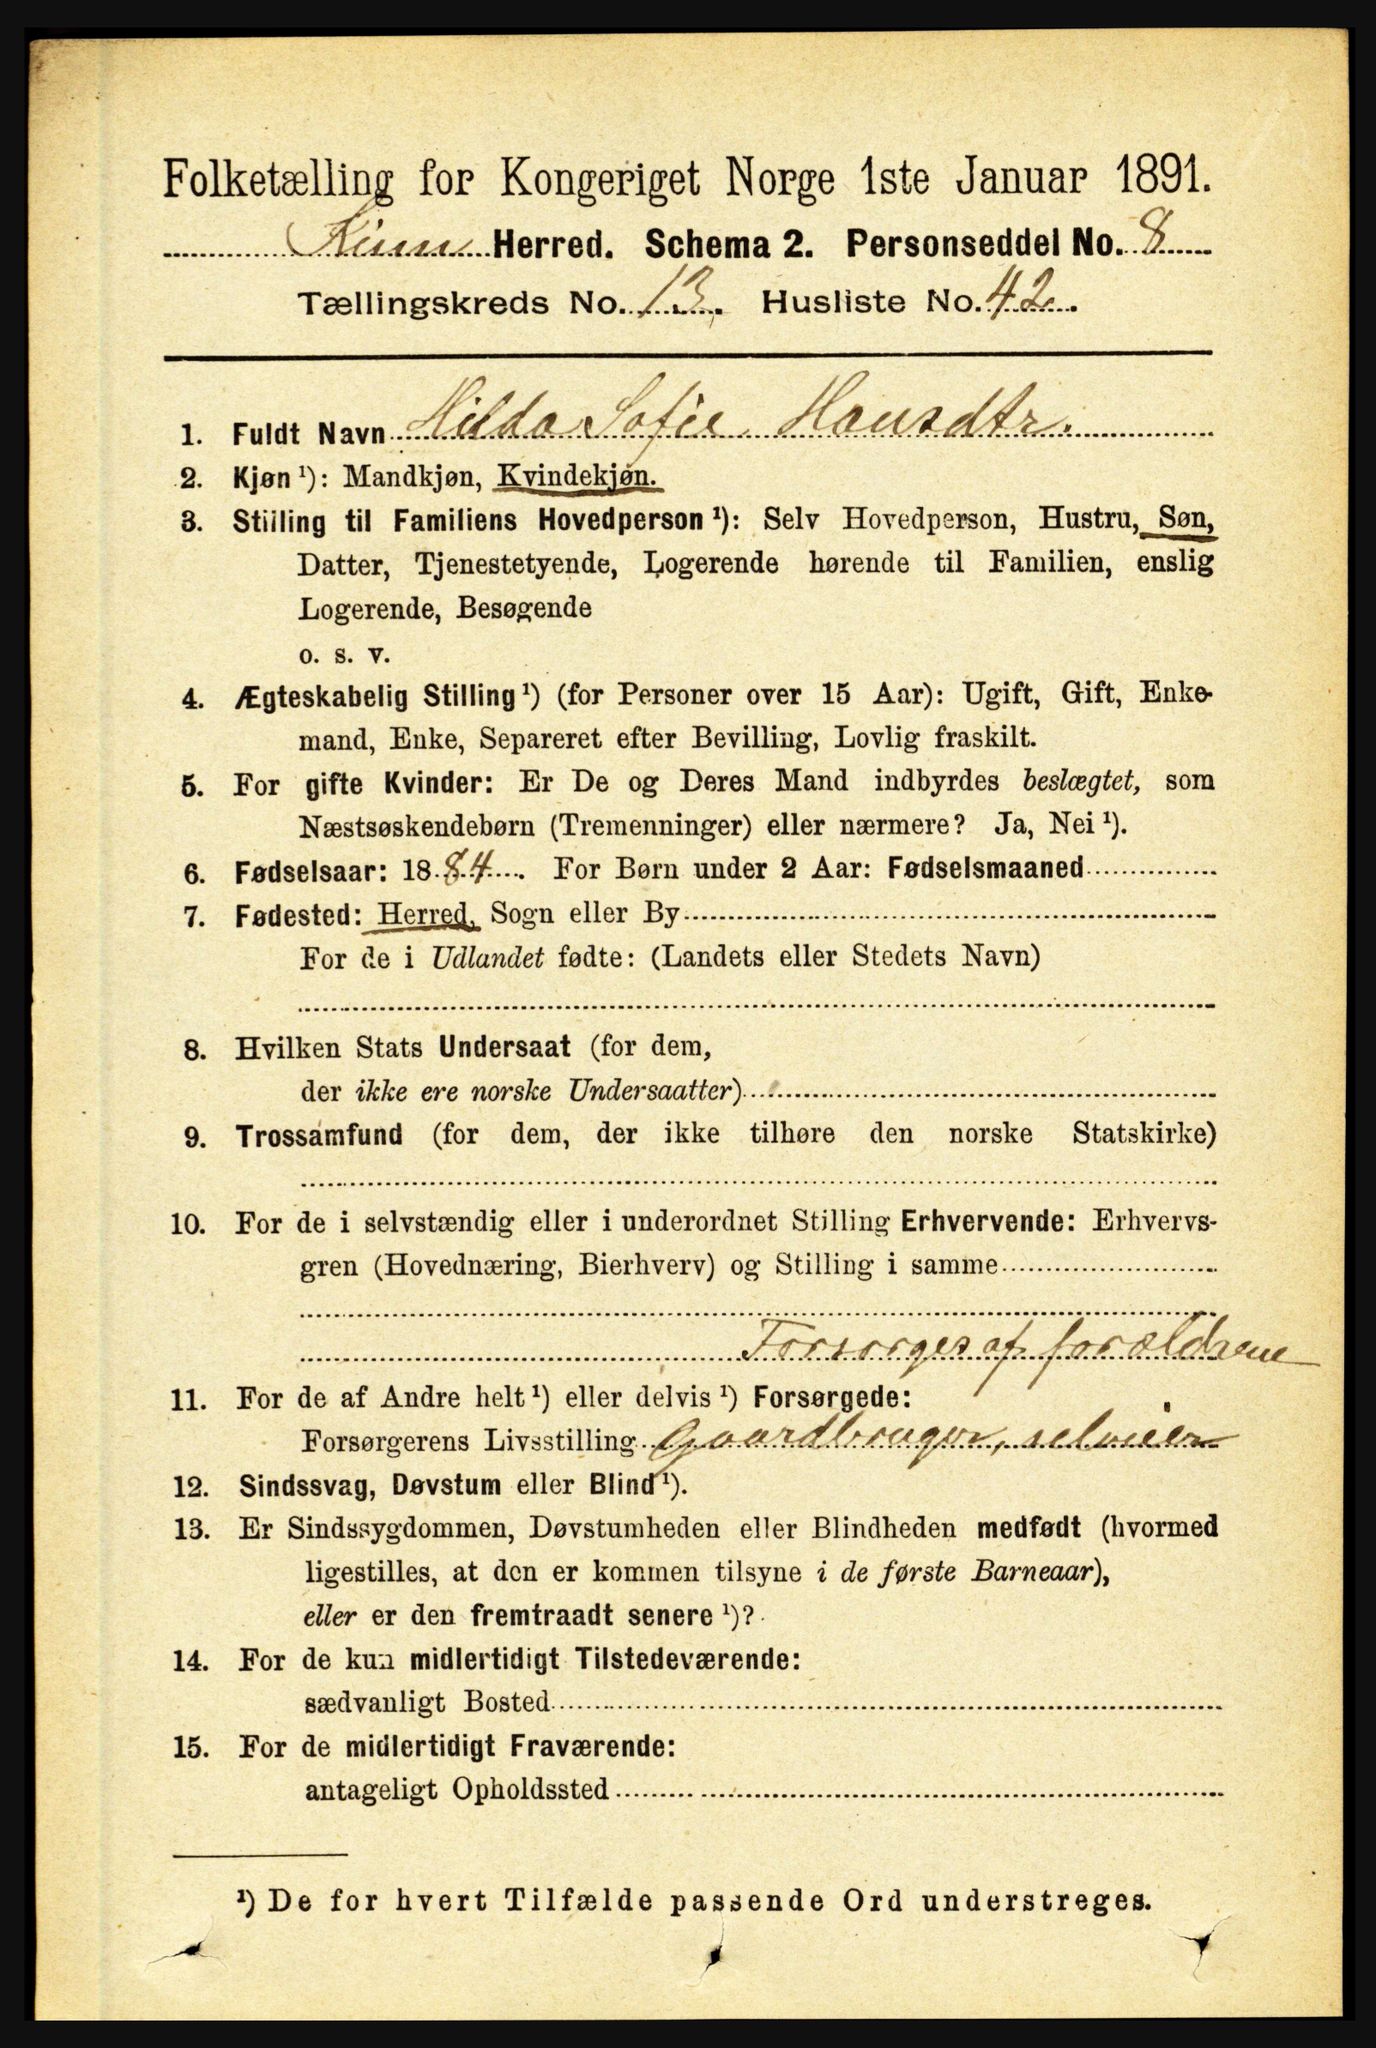 Folketælling for Kongeriget Norge 1ste Januar 1891.
Kinn Herred. Schema 2. Personseddel No. 8
Tællingskreds No. 13. Husliste No. 42.
1. Fuldt Navn Hilda Sofie Hansdtr.
2. Kjøn ¹): Mandkjøn, Kvindekjøn.
3. Stilling til Familiens Hovedperson ¹): Selv Hovedperson, Hustru, Søn,
Datter, Tjenestetyende, Logerende hørende til Familien, enslig
Logerende, Besøgende
o. s. v.
4. Ægteskabelig Stilling ¹) (for Personer over 15 Aar): Ugift, Gift, Enke-
mand, Enke, Separeret efter Bevilling, Lovlig fraskilt.
5. For gifte Kvinder: Er De og Deres Mand indbyrdes beslægtet, som
Næstsøskendebørn (Tremenninger) eller nærmere? Ja, Nei ¹).
6. Fødselsaar: 1884. For Børn under 2 Aar: Fødselsmaaned
7. Fødested: Herred, Sogn eller By
For de i Udlandet fødte: (Landets eller Stedets Navn)
8. Hvilken Stats Undersaat (for dem,
der ikke ere norske Undersaatter)
9. Trossamfund (for dem, der ikke tilhøre den norske Statskirke)
10. For de i selvstændig eller i underordnet Stilling Erhvervende: Erhvervs-
gren (Hovednæring, Bierhverv) og Stilling i samme
Forsorges af forældrene
11. For de af Andre helt ¹) eller delvis ¹) Forsørgede:
Forsørgerens Livsstilling Gaardbruger, selveier
12. Sindssvag, Døvstum eller Blind ¹).
13. Er Sindssygdommen, Døvstumheden eller Blindheden medfødt (hvormed
ligestilles, at den er kommen tilsyne i de første Barneaar),
eller er den fremtraadt senere ¹)?
14. For de kun midlertidigt Tilstedeværende:
sædvanligt Bosted
15. For de midlertidigt Fraværende:
antageligt Opholdssted
¹) De for hvert Tilfælde passende Ord understreges.